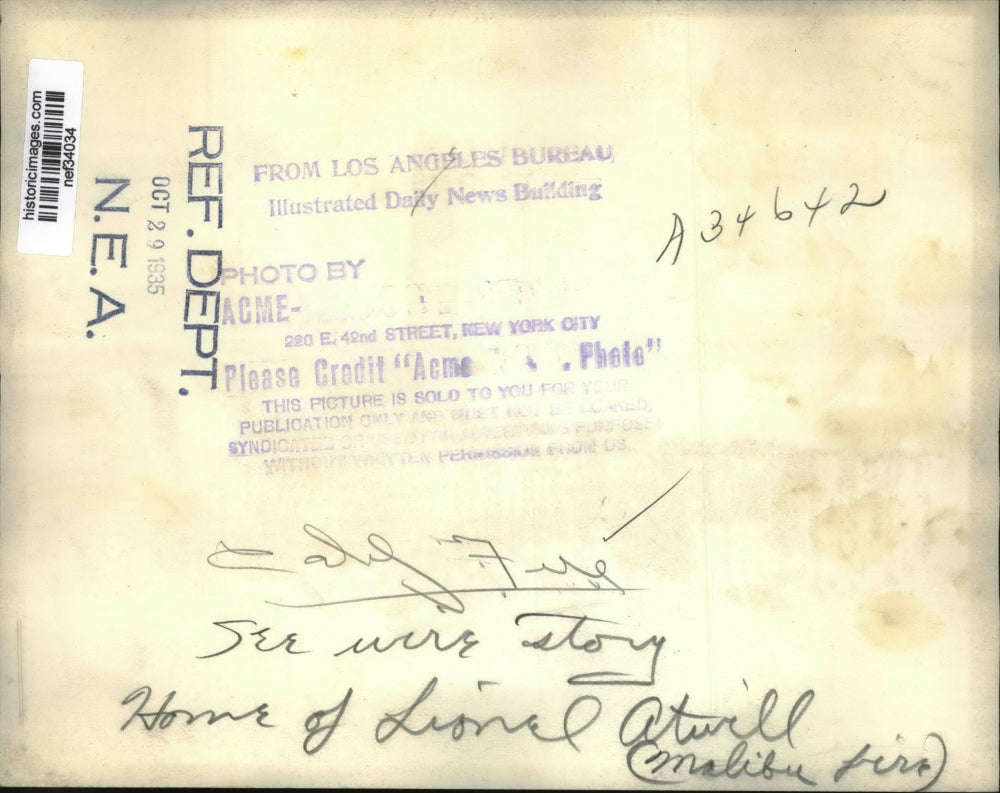 historicimages.com
nef34034
REF. DEPT.
OCT 29 1935
N.E.A.
FROM LOS ANGELES BUREAU
Illustrated Daily News Building
A34642
PHOTO BY
ACME-
220 E. 42nd STREET, NEW YORK CITY
Please Credit "Acme Photo"
THIS PICTURE IS SOLD TO YOU FOR YOUR
PUBLICATION ONLY AND MUST NOT BE LOANED,
SYNDICATED OR USED FOR ADVERTISING PURPOSES
WITHOUT WRITTEN PERMISSION FROM US.
Fire
See wire story
Home of Lionel Atwill
(Malibu fire)